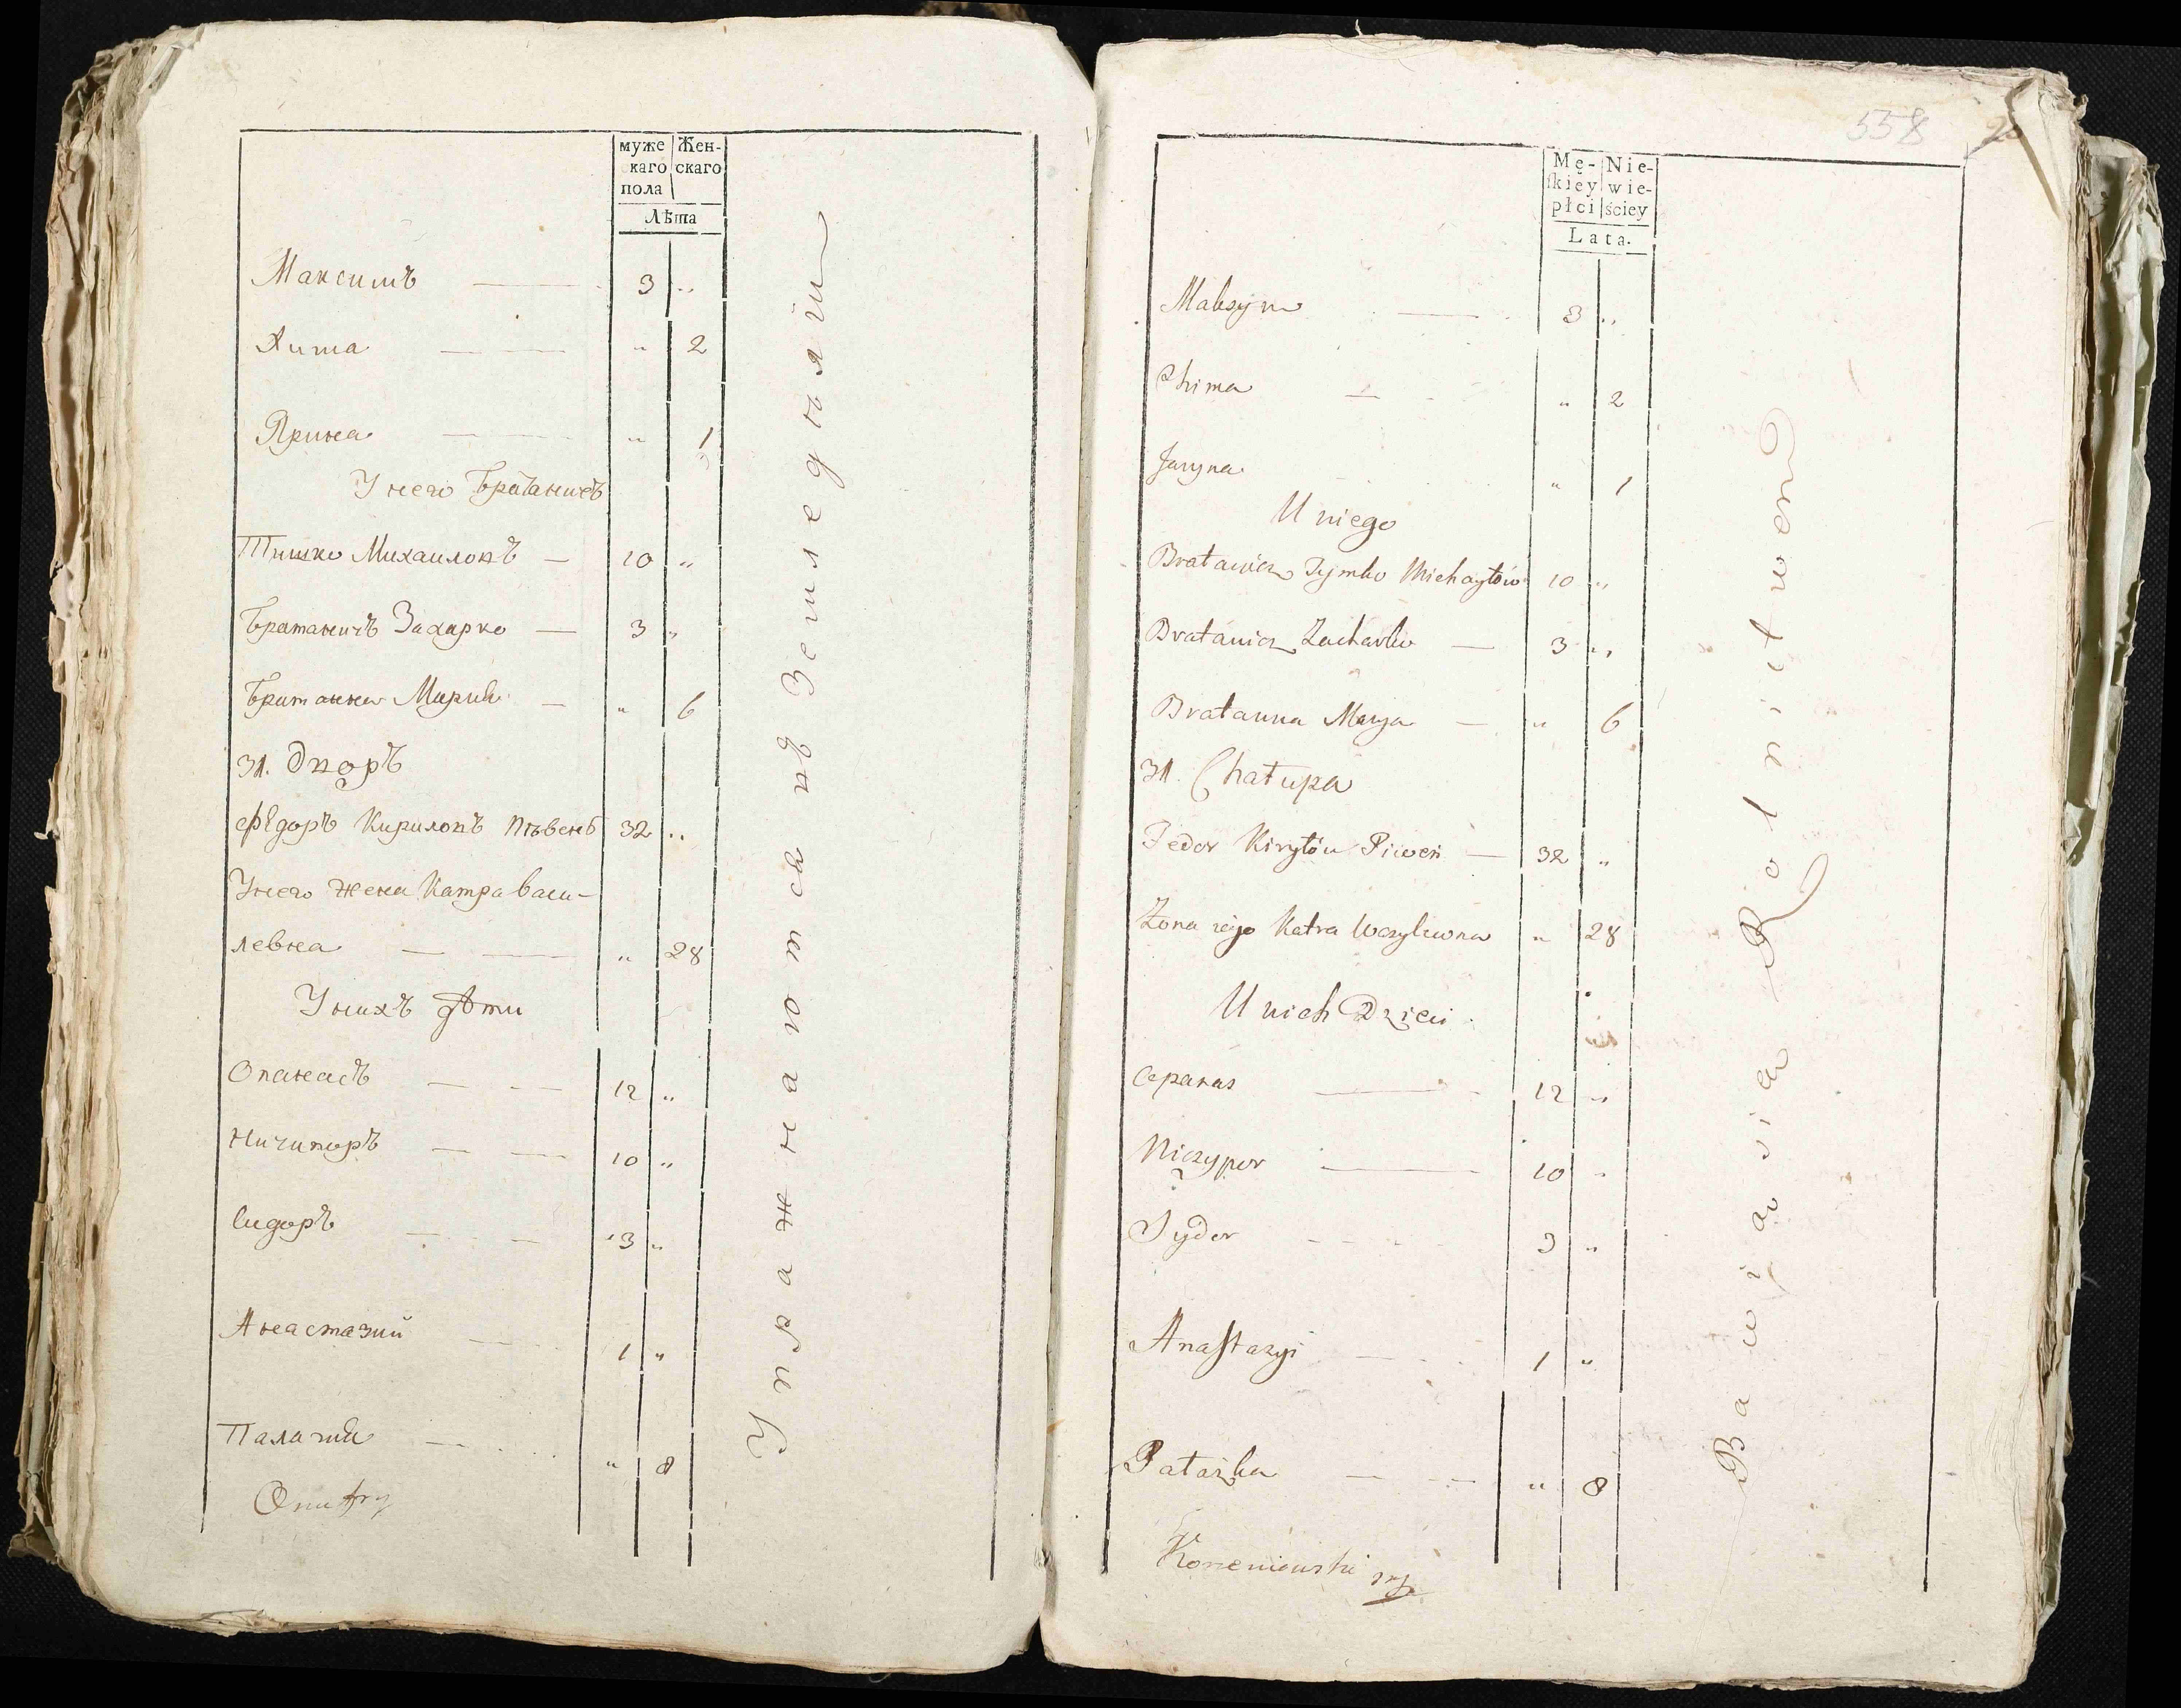 муже Жен-
скаго скаго
пола
Лѣта
Максимъ — 3 „
Хима — „ 2
Ярина — „ 1
У него Братаничъ
Тишко Михаиловъ — 10 „
Братаничъ Захарко — 3 „
Братанна Мария — „ 6
31. Дворъ
Федоръ Кириловъ Пѣвень 32 „
У него жена Катра Васи-
левна — „ 28
У нихъ дѣти
Опанасъ — 12 „
Ничипоръ — 10 „
Сидоръ — 3 „
Анастазий — 1 „
Палажка — „ 8
Упражнаются въ Земледѣлїи
558
Mę- Nie-
skiey wie-
płci ściey
Lata.
Maksym — 3 „
Chima — „ 2
Jaryna „ 1
U niego
Bratanicz Tymko Michayłów 10 „
Bratanicz Zacharko — 3 „
Bratanna Marya — „ 6
31. Chałupa
Fedor Kiryłów Piweń — 32 „
Żona iego Katra Wasylewna „ 28
U nich Dzieci
Opanas — 12 „
Niczypor — 10 „
Sydor — 3 „
Anastazyi — 1 „
Pałażka — „ 8
Bawią się Rolnictwem